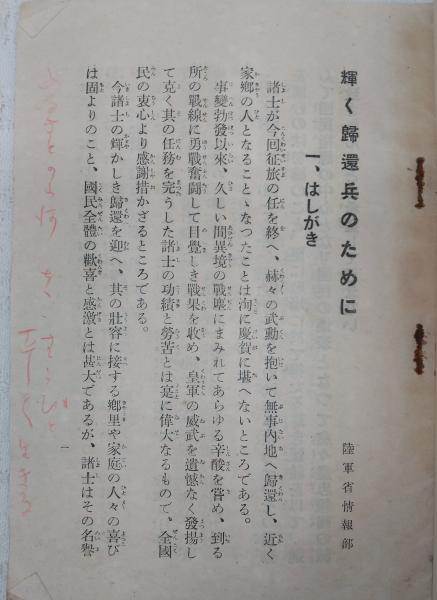 輝く歸還兵のために
陸軍省情報部
一、はしがき
諸士が今回征旅の任を終へ、赫々の武勳を抱いて無事內地へ歸還し、近く
家鄕の人となることゝなつたことは洵に慶賀に堪へないところである。
事變勃發以來、久しい間異境の戰塵にまみれてあらゆる辛酸を嘗め、到る
所の戰線に勇戰奮鬪して目覺しき戰果を收め、皇軍の威武を遺憾なく發揚し
て克く其の任務を完うした諸士の功績と勞苦とは寔に偉大なるもので、全國
民の衷心より感謝措かざるところである。
今諸士の輝かしき歸還を迎へ、其の壯容に接する鄕里や家庭の人々の喜び
は固よりのこと、國民全體の歡喜と感激とは甚大であるが、諸士はその名譽
一